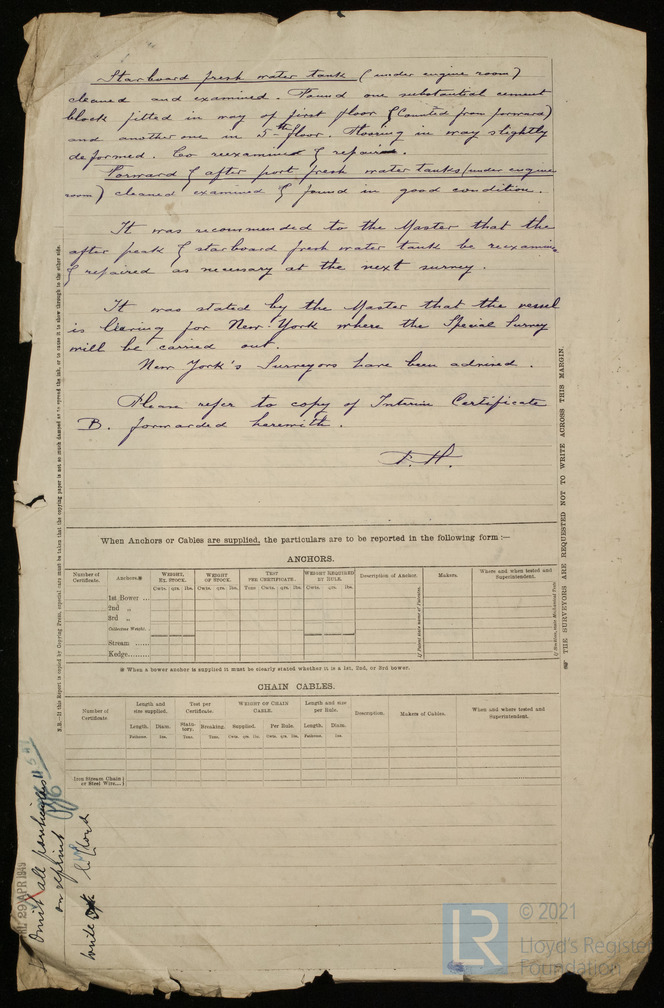 Starboard fresh water tank (under engine room)
cleaned and examined. Found one substantial cement
block pitted in way of first floor & (counted from forward)
and another one in 5th floor. Flooring in way slightly
deformed. To reexamine & repair.
Forward & after port fresh water tanks (under engine
room) cleaned examined & found in good condition.
It was recommended to the Master that the
after peak & starboard fresh water tank be reexamine
& repaired as necessary at the next survey.
It was stated by the Master that the vessel
is leaving for New York where the Special Survey
will be carried out.
New York's Surveyors have been advised.
Please refer to copy of Interim Certificate
B. forwarded herewith.
When Anchors or Cables are supplied, the particulars are to be reported in the following form :—
ANCHORS.
Number of Certificate. Anchors.※ WEIGHT, EX. STOCK. WEIGHT OF STOCK. TEST PER CERTIFICATE. WEIGHT REQUIRED BY RULE. Description of Anchor. Makers. Where and when tested and Superintendent.
Cwts. qrs. lbs. Cwts. qrs. lbs. Tons Cwts. qrs. lbs. Cwts. qrs. lbs.
1st Bower ...
2nd „
3rd „
Collective Weight.
Stream ......
Kedge........
※ When a bower anchor is supplied it must be clearly stated whether it is a 1st, 2nd, or 3rd bower.
CHAIN CABLES.
Number of Certificate. Length and size supplied. Test per Certificate. WEIGHT OF CHAIN CABLE. Length and size per Rule. Description. Makers of Cables. When and where tested and Superintendent.
Length. Diam. Statutory. Breaking. Supplied. Per Rule. Length. Diam.
Fathoms. Ins. Tons. Tons. Cwts. qrs. lbs. Cwts. qrs. lbs. Fathoms. Ins.
Iron Stream Chain or Steel Wire...
N.B.—If this Report is copied by Copying Press, especial care must be taken that the copying paper is not so much damped as to spread the ink, or to cause it to show through to the other side.
☞ THE SURVEYORS ARE REQUESTED NOT TO WRITE ACROSS THIS MARGIN.
29 APR 1949
Omit all particulars
on reprint
write
LR
© 2021
Lloyd's Register
Foundation